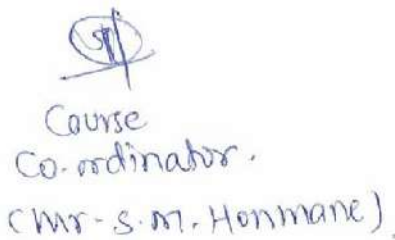 Course
Co-ordinator.
(Mr. S. M. Honmane)